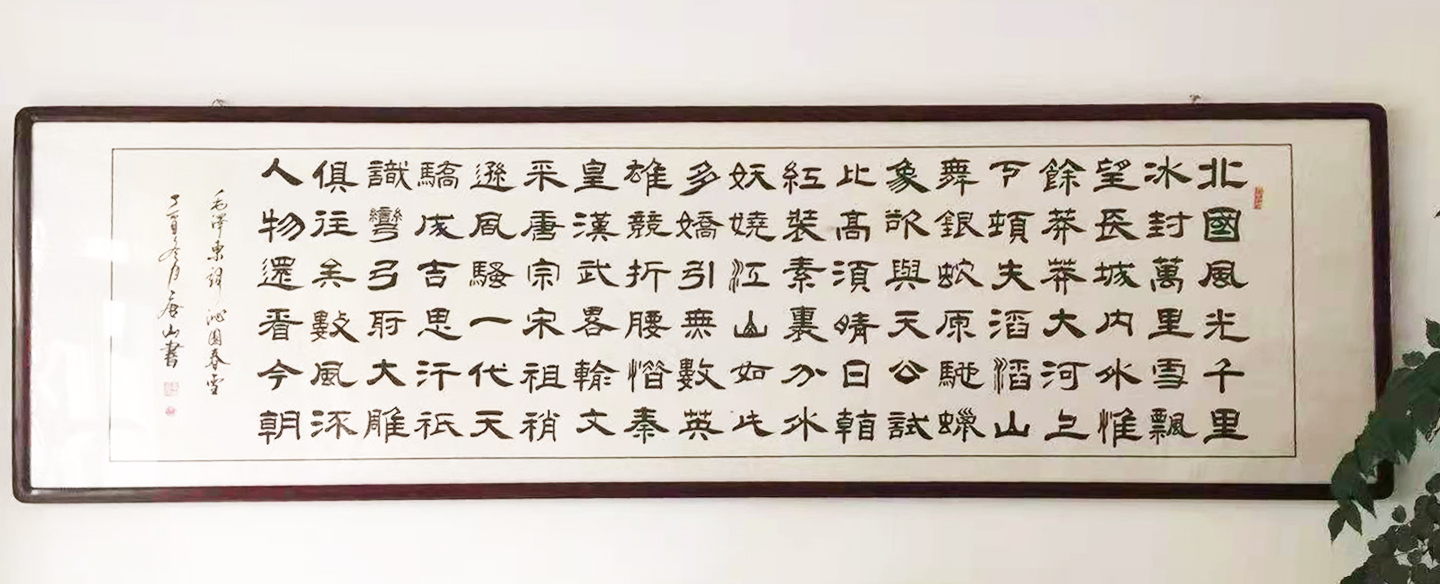 北國風光千里
冰封萬里雪飄
望長城內外惟
餘莽莽大河上
下頓失滔滔山
舞銀蛇原馳蠟
象欲與天公試
比高須晴日
紅裝素裹分外
妖嬈江山如此
多嬌引無數英
雄競折腰惜秦
皇漢武略輸文
采唐宗宋祖稍
遜風騷一代天
驕成吉思汗祇
識彎弓射大雕
俱往矣數風流
人物還看今朝
毛澤東詞沁園春雪
丁酉冬月山書